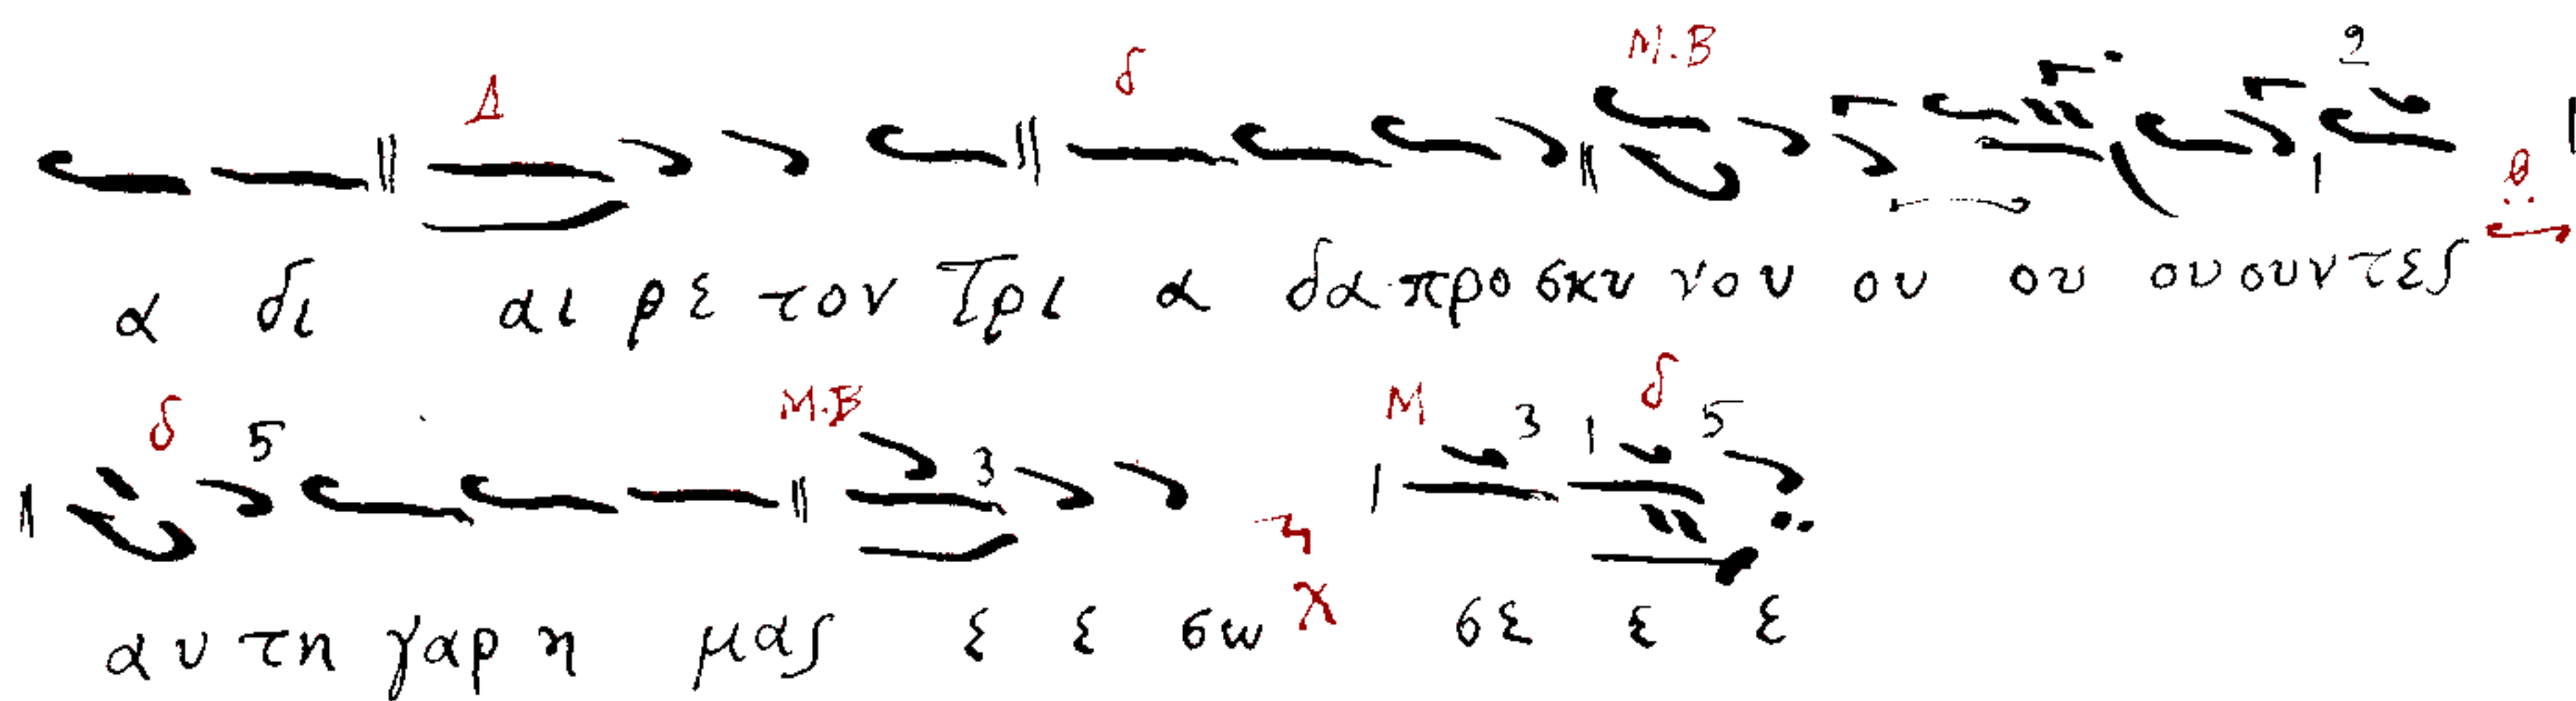 Δ δ Μ.Β 2
α δι αι ρε τον Τρι α δα προ σκυ νου ου ου ου ουν τες
δ 5 Μ.Β 3 Μ 3 δ 5
αυ τη γαρ η μας ε ε σω σε ε ε